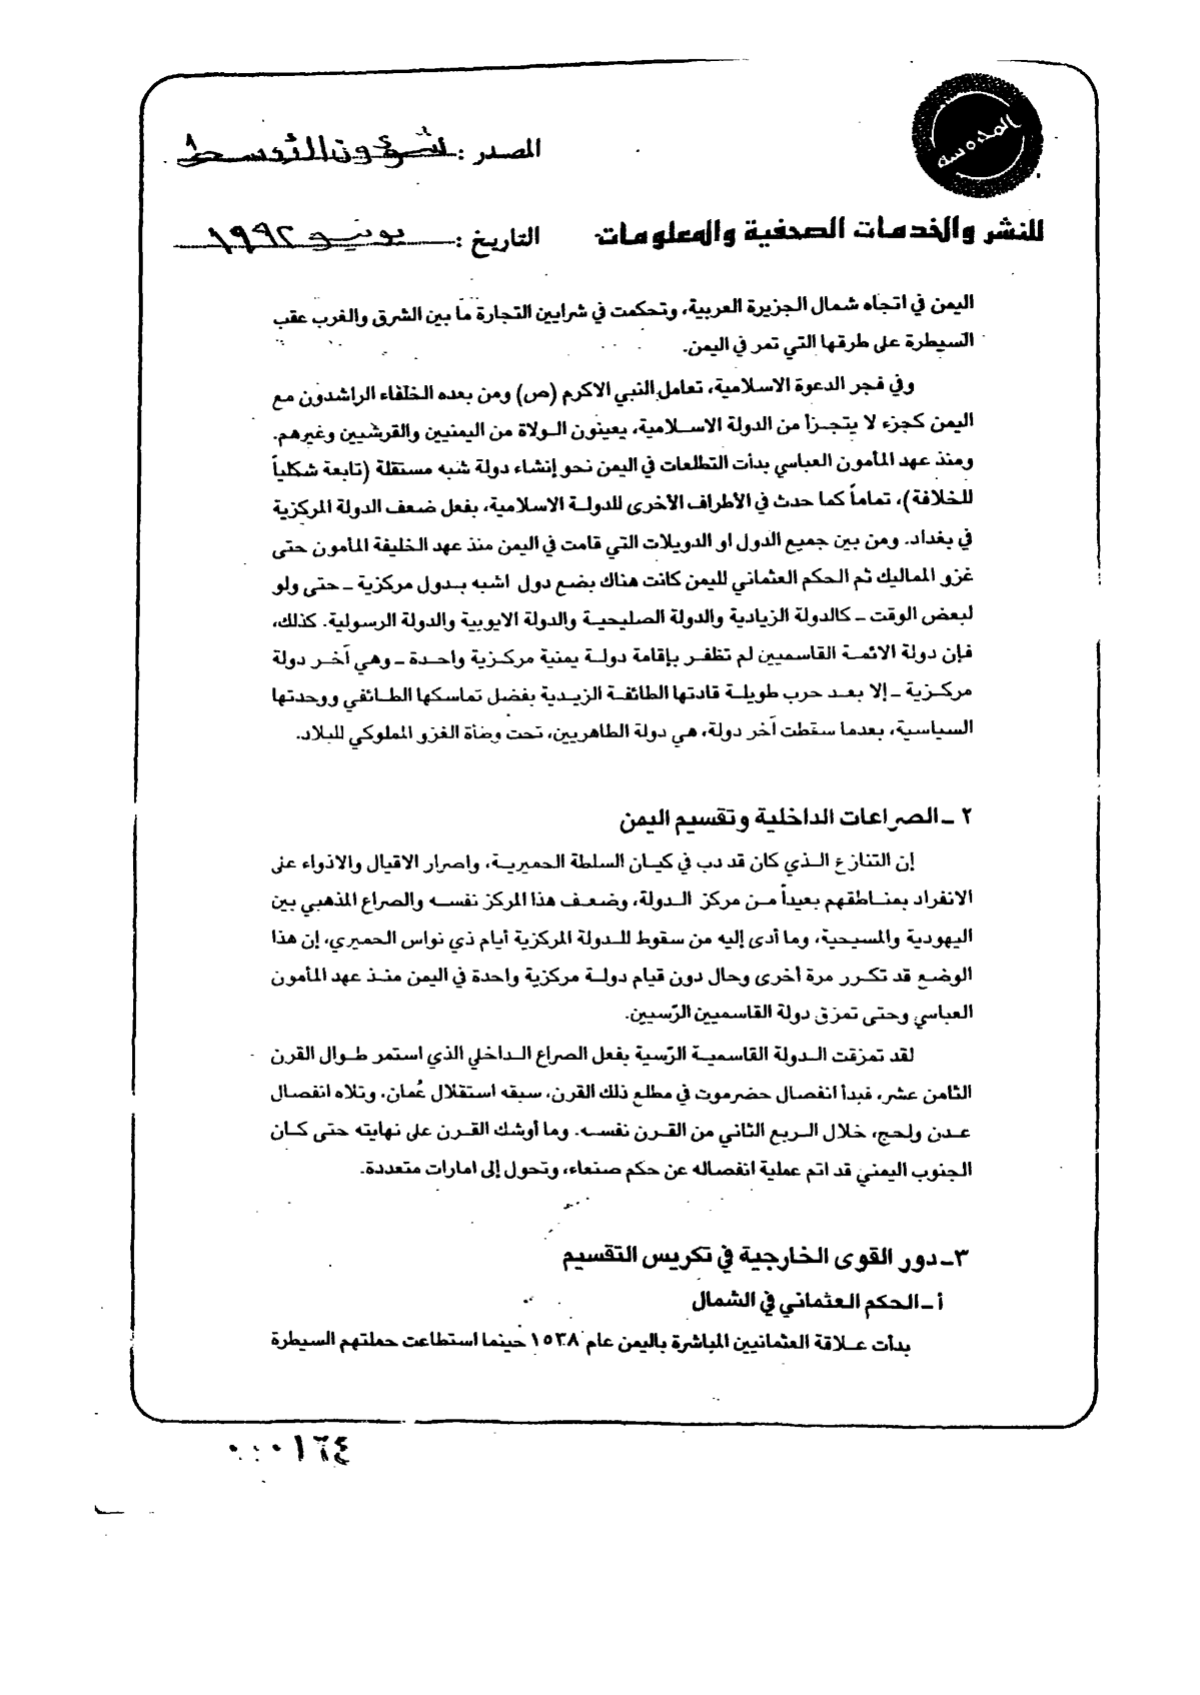 المدرسة
المصدر : شؤون الأوسط
للنشر والخدمات الصحفية والمعلومات
التاريخ : يونيو ١٩٩٢
اليمن في اتجاه شمال الجزيرة العربية، وتحكمت في شرايين التجارة ما بين الشرق والغرب عقب
السيطرة على طرقها التي تمر في اليمن.
وفي فجر الدعوة الاسلامية، تعامل النبي الاكرم (ص) ومن بعده الخلفاء الراشدون مع
اليمن كجزء لا يتجزأ من الدولة الاسلامية، يعينون الولاة من اليمنيين والقرشيين وغيرهم.
ومنذ عهد المأمون العباسي بدأت التطلعات في اليمن نحو إنشاء دولة شبه مستقلة (تابعة شكلياً
للخلافة)، تماماً كما حدث في الأطراف الأخرى للدولة الاسلامية، بفعل ضعف الدولة المركزية
في بغداد. ومن بين جميع الدول او الدويلات التي قامت في اليمن منذ عهد الخليفة المأمون حتى
غزو المماليك ثم الحكم العثماني لليمن كانت هناك بضع دول اشبه بدول مركزية ـ حتى ولو
لبعض الوقت ـ كالدولة الزيادية والدولة الصليحية والدولة الايوبية والدولة الرسولية. كذلك،
فإن دولة الائمة القاسميين لم تظفر بإقامة دولة يمنية مركزية واحدة ـ وهي آخر دولة
مركزية ـ إلا بعد حرب طويلة قادتها الطائفة الزيدية بفضل تماسكها الطائفي ووحدتها
السياسية، بعدما سقطت آخر دولة، هي دولة الطاهريين، تحت وطأة الغزو المملوكي للبلاد.
٢ ـ الصراعات الداخلية وتقسيم اليمن
إن التنازع الذي كان قد دب في كيان السلطة الحميرية، واصرار الاقيال والاذواء على
الانفراد بمناطقهم بعيداً من مركز الدولة، وضعف هذا المركز نفسه والصراع المذهبي بين
اليهودية والمسيحية، وما أدى إليه من سقوط للدولة المركزية أيام ذي نواس الحميري، إن هذا
الوضع قد تكرر مرة أخرى وحال دون قيام دولة مركزية واحدة في اليمن منذ عهد المأمون
العباسي وحتى تمزق دولة القاسميين الرّسيين.
لقد تمزقت الدولة القاسمية الرّسية بفعل الصراع الداخلي الذي استمر طوال القرن
الثامن عشر، فبدأ انفصال حضرموت في مطلع ذلك القرن، سبقه استقلال عُمان، وتلاه انفصال
عدن ولحج، خلال الربع الثاني من القرن نفسه. وما أوشك القرن على نهايته حتى كان
الجنوب اليمني قد اتم عملية انفصاله عن حكم صنعاء، وتحول إلى امارات متعددة.
٣ـ دور القوى الخارجية في تكريس التقسيم
أ ـ الحكم العثماني في الشمال
بدأت علاقة العثمانيين المباشرة باليمن عام ١٥٣٨ حينما استطاعت حملتهم السيطرة
٠٠٠١٦٤